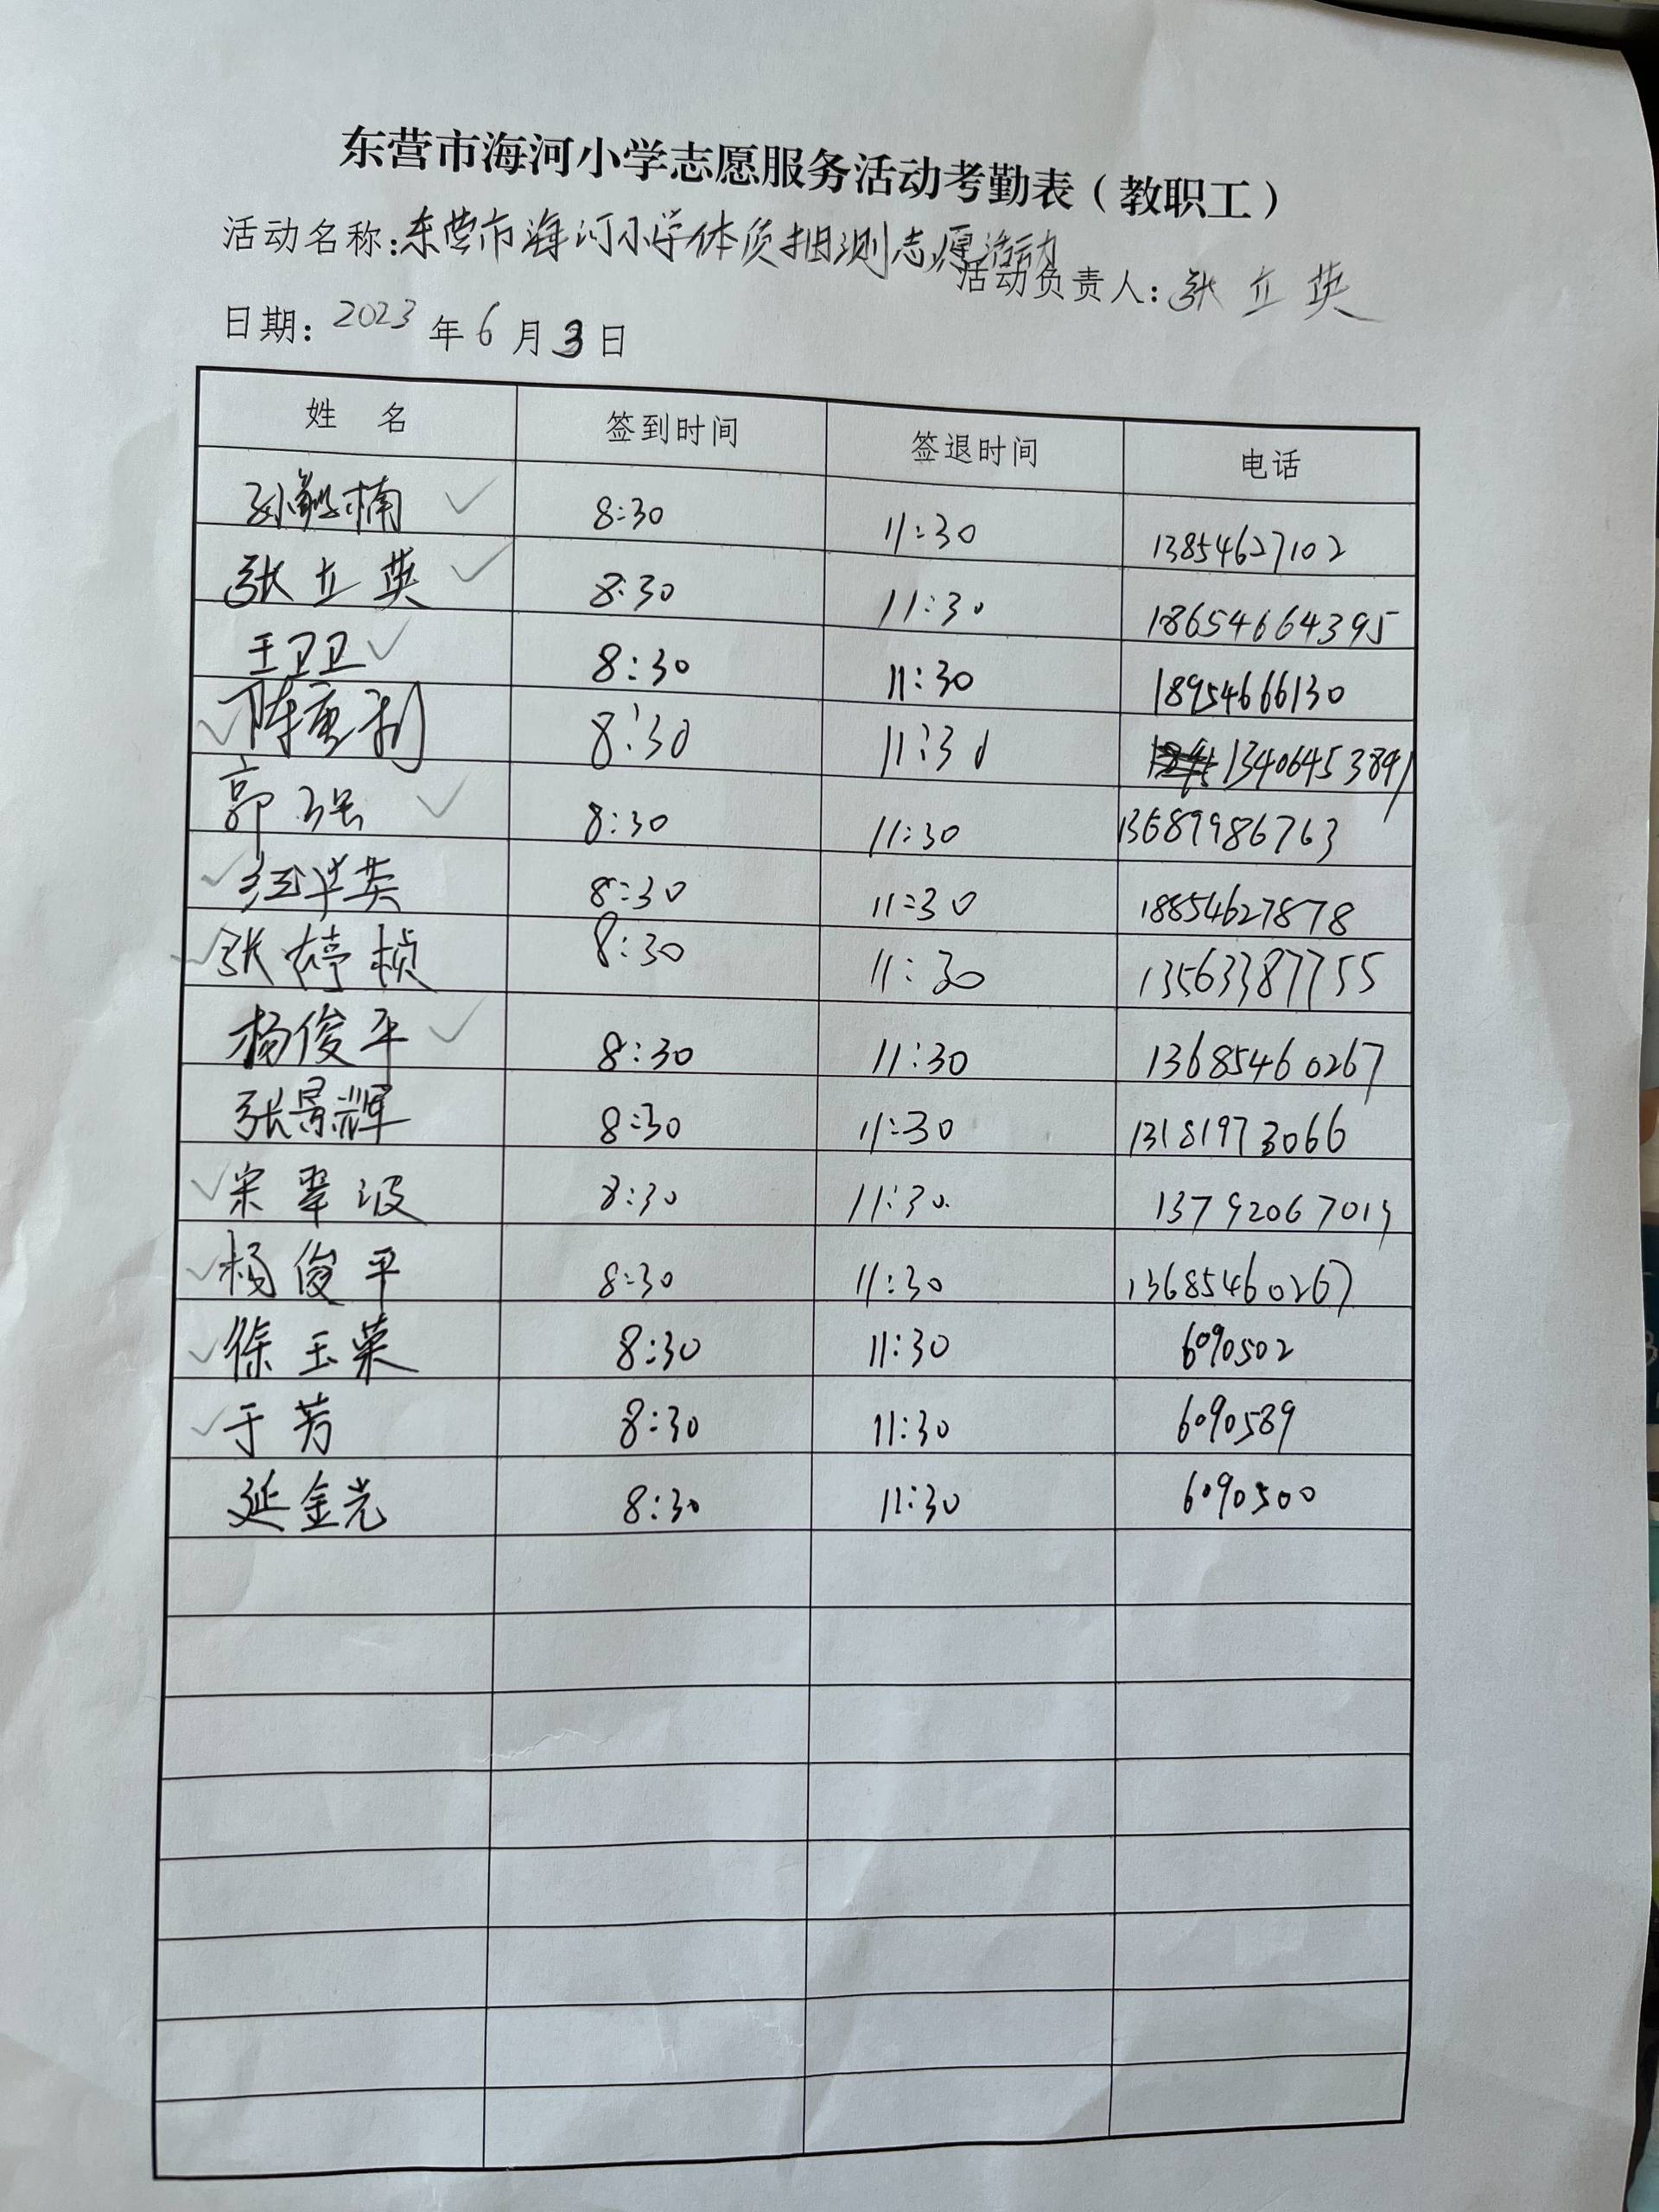 东营市海河小学志愿服务活动考勤表（教职工）
活动名称:东营市海河小学体质抽测志愿活动
活动负责人: 张立英
日期: 2023 年 6 月 3 日
姓 名 签到时间 签退时间 电话
孙 楠 8:30 11:30 13854627102
张立英 8:30 11:30 18654664395
王卫卫 8:30 11:30 18954666130
陈 利 8:30 11:30 13406453891
郭强 8:30 11:30 13689986763
英 8:30 11:30 18854627878
张婷桢 8:30 11:30 13563387755
杨俊平 8:30 11:30 13685460267
张景辉 8:30 11:30 13181973066
宋翠波 8:30 11:30 13792067019
杨俊平 8:30 11:30 13685460267
徐玉荣 8:30 11:30 6090502
于芳 8:30 11:30 6090589
延金光 8:30 11:30 6090500